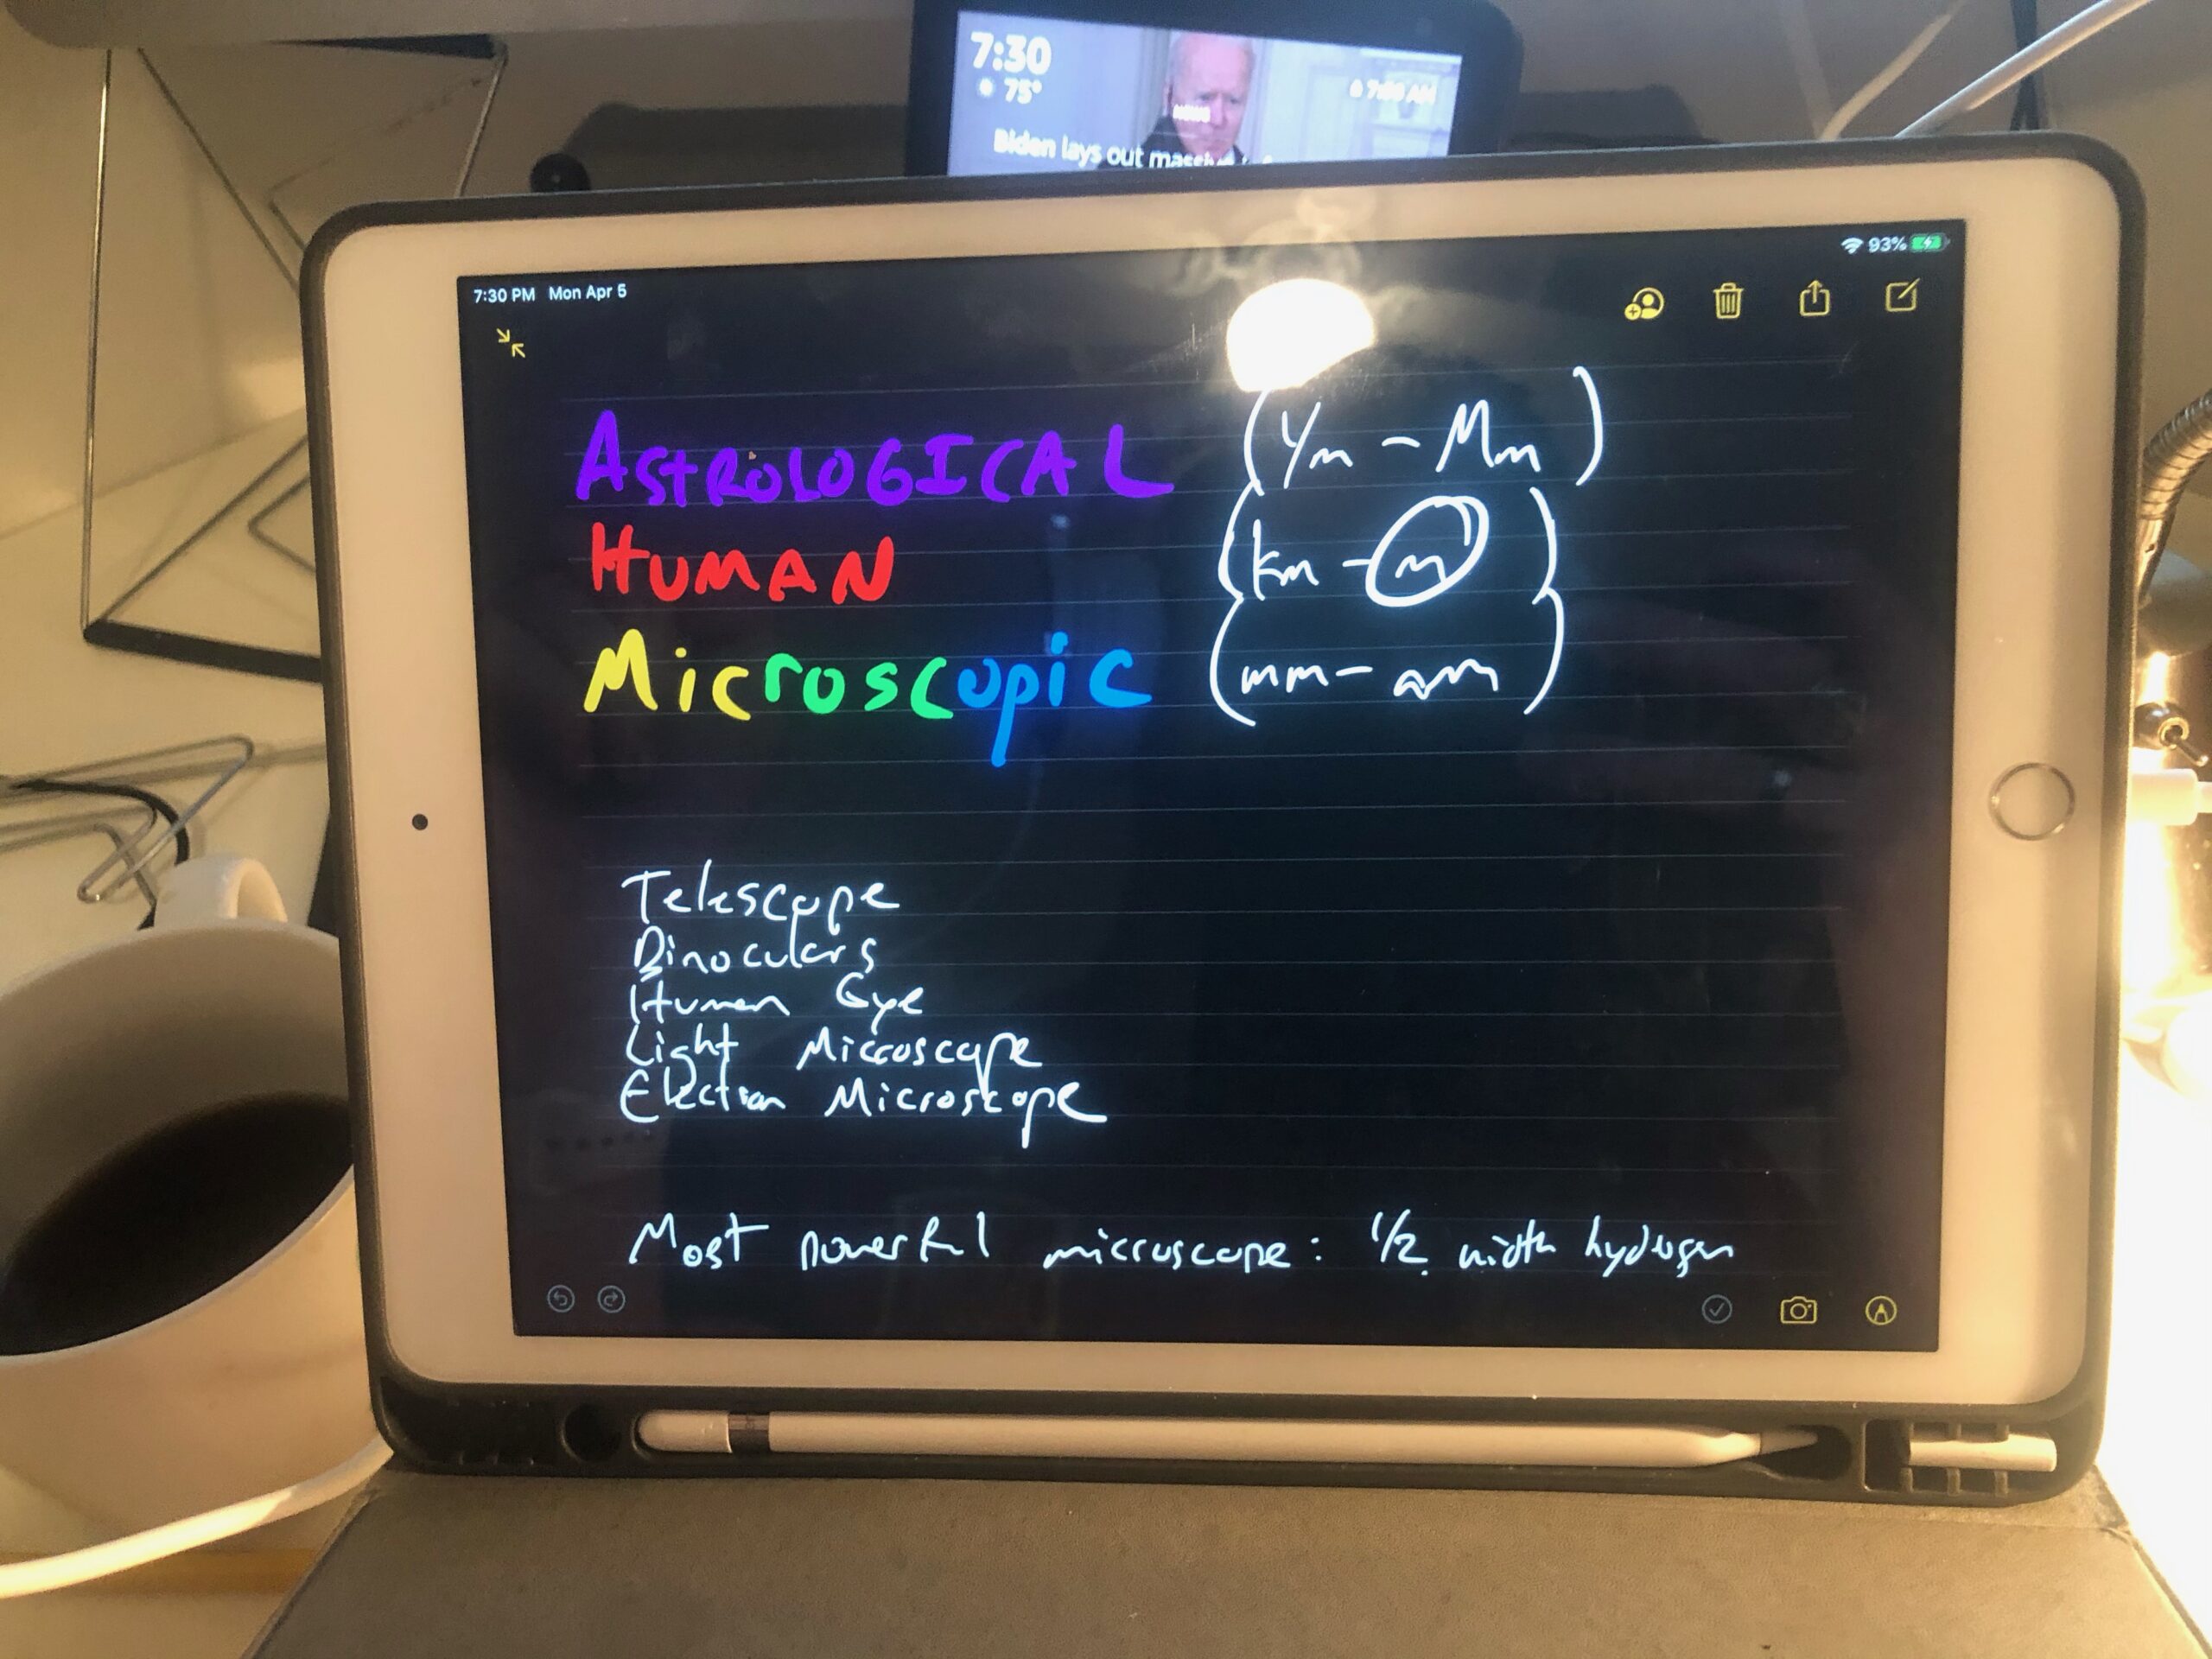 7:30
75°
7:00 AM
NEWS
Biden lays out massive
7:30 PM Mon Apr 5
93%
ASTROLOGICAL (Ym - Mm)
HUMAN (km - m)
Microscopic (mm - am)
Telescope
Binoculars
Human Eye
Light Microscope
Electron Microscope
Most powerful microscope: 1/2 width hydrogen